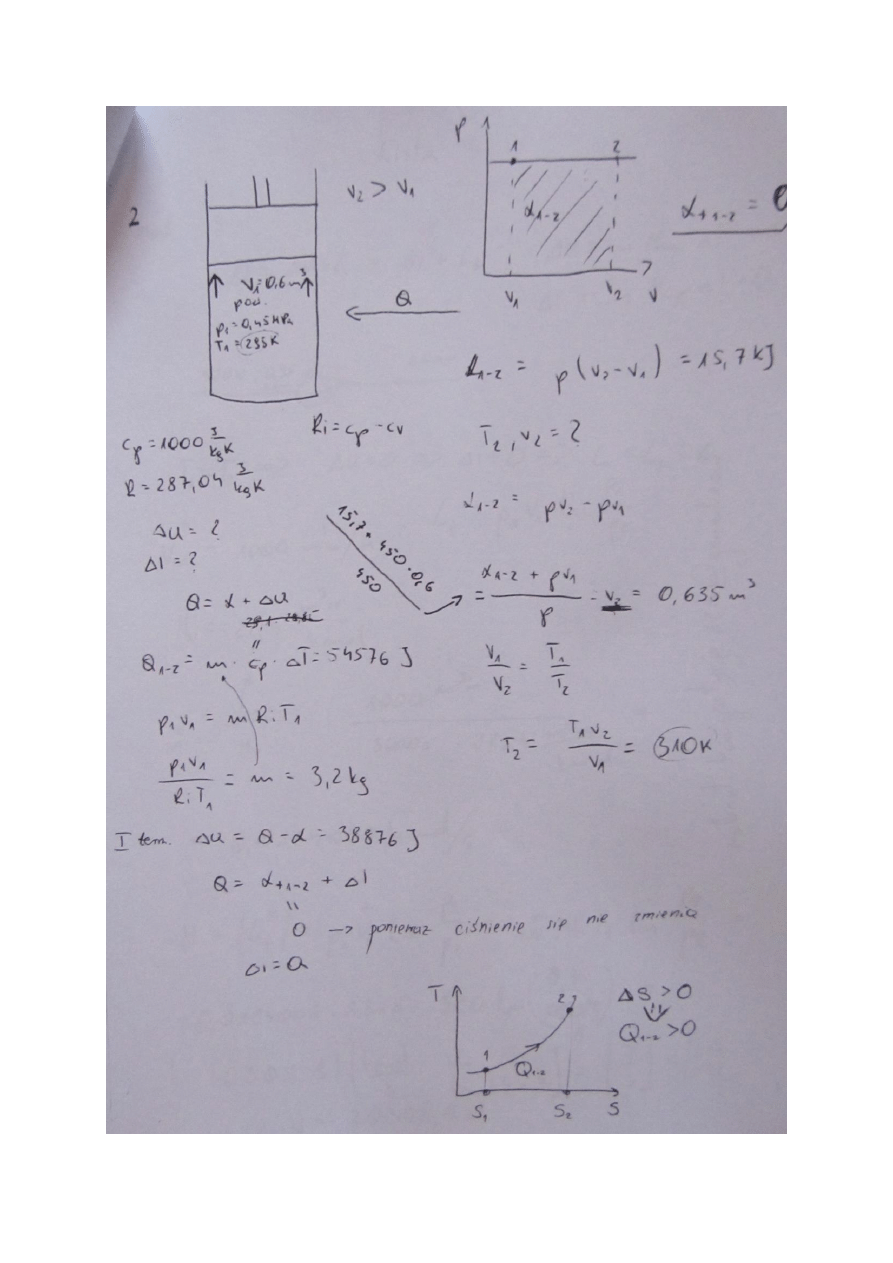 2
V₂ > V₁
p
1
2
L₁₋₂
V₁
V₂
V
Lₜ₁₋₂ = 0
V₁ = 0,6 m³
pow.
p₁ = 0,45 MPa
T₁ = 295K
Q
L₁₋₂ = p(V₂ - V₁) = 15,7 kJ
cp = 1000 J/kgK
Ri = cp - cv
R = 287,04 J/kgK
T₂, V₂ = ?
ΔU = ?
ΔI = ?
L₁₋₂ = pV₂ - pV₁
15,7 + 450·0,6
450
Q = L + ΔU
= (L₁₋₂ + pV₁)/p = V₂ = 0,635 m³
Q₁₋₂ = m · cp · ΔT = 54576 J
V₁/V₂ = T₁/T₂
p₁V₁ = m Ri T₁
T₂ = T₁V₂/V₁ = 310K
p₁V₁/RiT₁ = m = 3,2 kg
I tem. ΔU = Q - L = 38876 J
Q = Lₜ₁₋₂ + ΔI
"
0 → ponieważ ciśnienie się nie zmienia
ΔI = Q
T
1
2
Q₁₋₂
S₁
S₂
S
ΔS > 0
Q₁₋₂ > 0